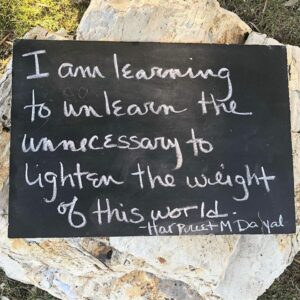 I am learning
to unlearn the
unnecessary to
lighten the weight
of this world.
-Harpreet M Dayal